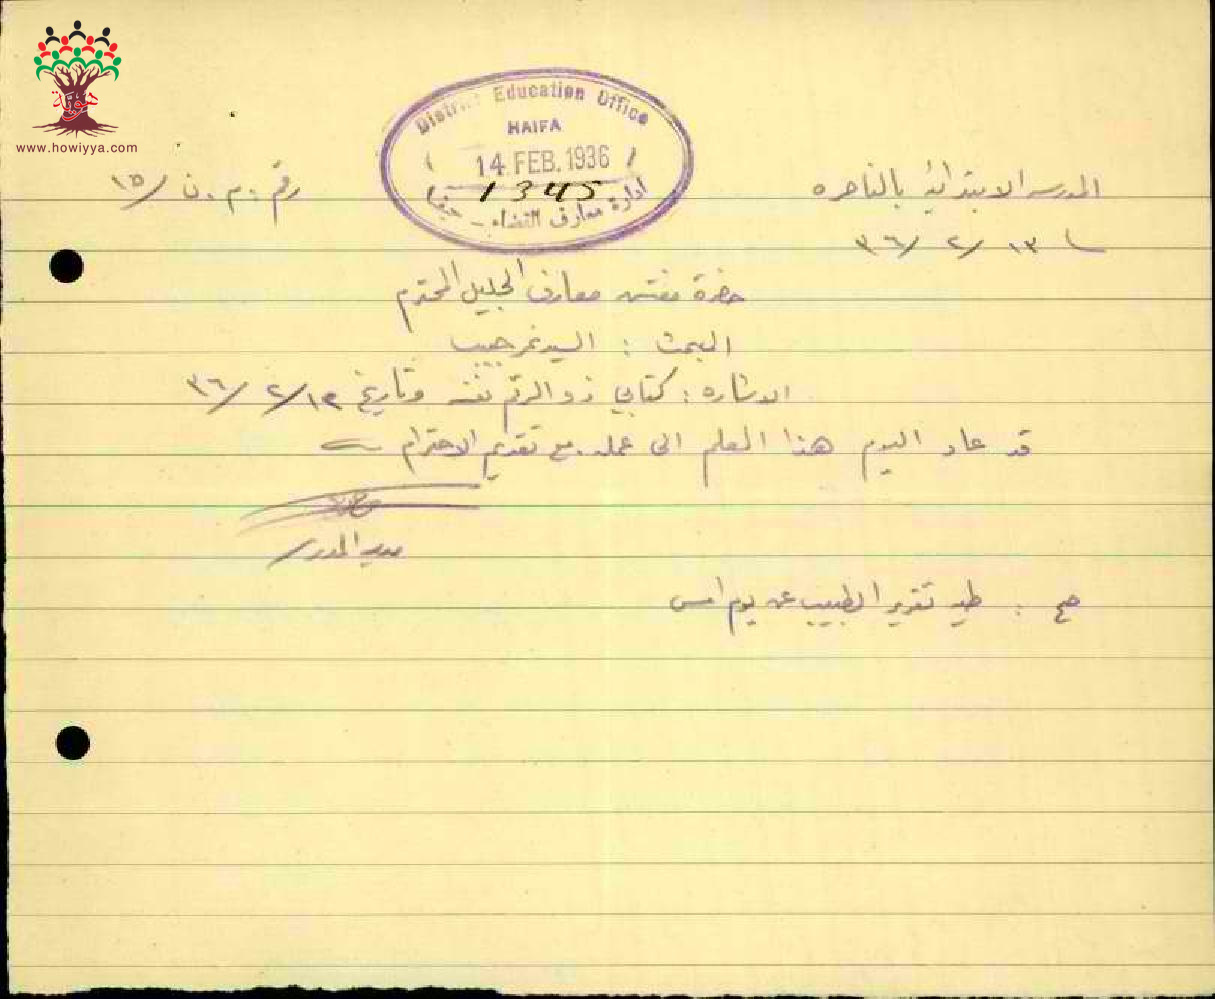 هوية
www.howiyya.com
District Education Office
HAIFA
14 FEB. 1936
1345
ادارة معارف القضاء - حيفا
المدرسه الابتدائية بالناصره
رقم: م. ن / ١٥
١٣ / ٢ / ٣٦
حضرة مفتش معارف الجليل المحترم
البحث : السيد نمر حبيب
الاشاره : كتابي ذو الرقم نفسه وتاريخ ١٢ / ٢ / ٣٦
قد عاد اليوم هذا المعلم الى عمله. مع تقديم الاحترام
مدير المدرسه
طيه تقرير الطبيب عن يوم امس